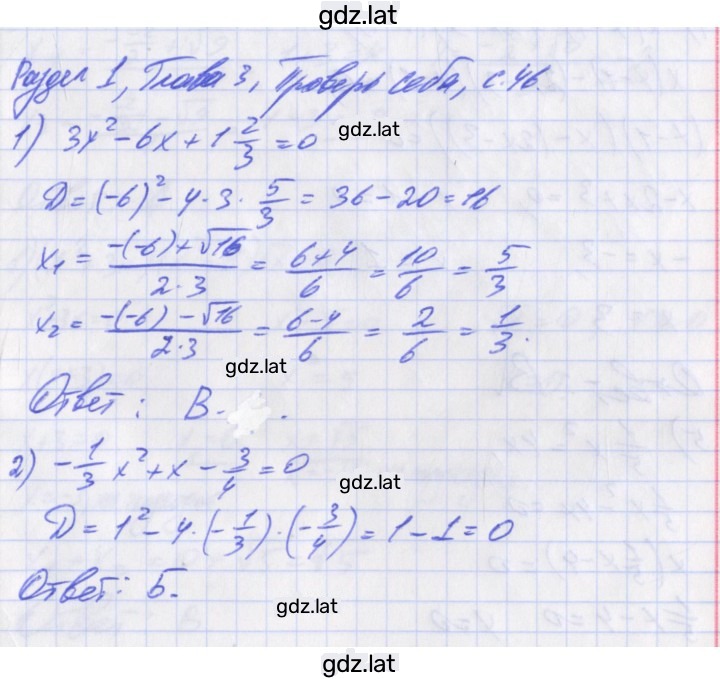 gdz.lat
Раздел I, Глава 3, Проверь себя, с. 46.
1) 3x² - 6x + 1 2/3 = 0
gdz.lat
D = (-6)² - 4 · 3 · 5/3 = 36 - 20 = 16
x₁ = (-(-6) + √16)/(2 · 3) = (6 + 4)/6 = 10/6 = 5/3
x₂ = (-(-6) - √16)/(2 · 3) = (6 - 4)/6 = 2/6 = 1/3.
gdz.lat
Ответ: В.
2) -1/3 x² + x - 3/4 = 0
gdz.lat
D = 1² - 4 · (-1/3) · (-3/4) = 1 - 1 = 0
Ответ: Б.
gdz.lat
gdz.lat